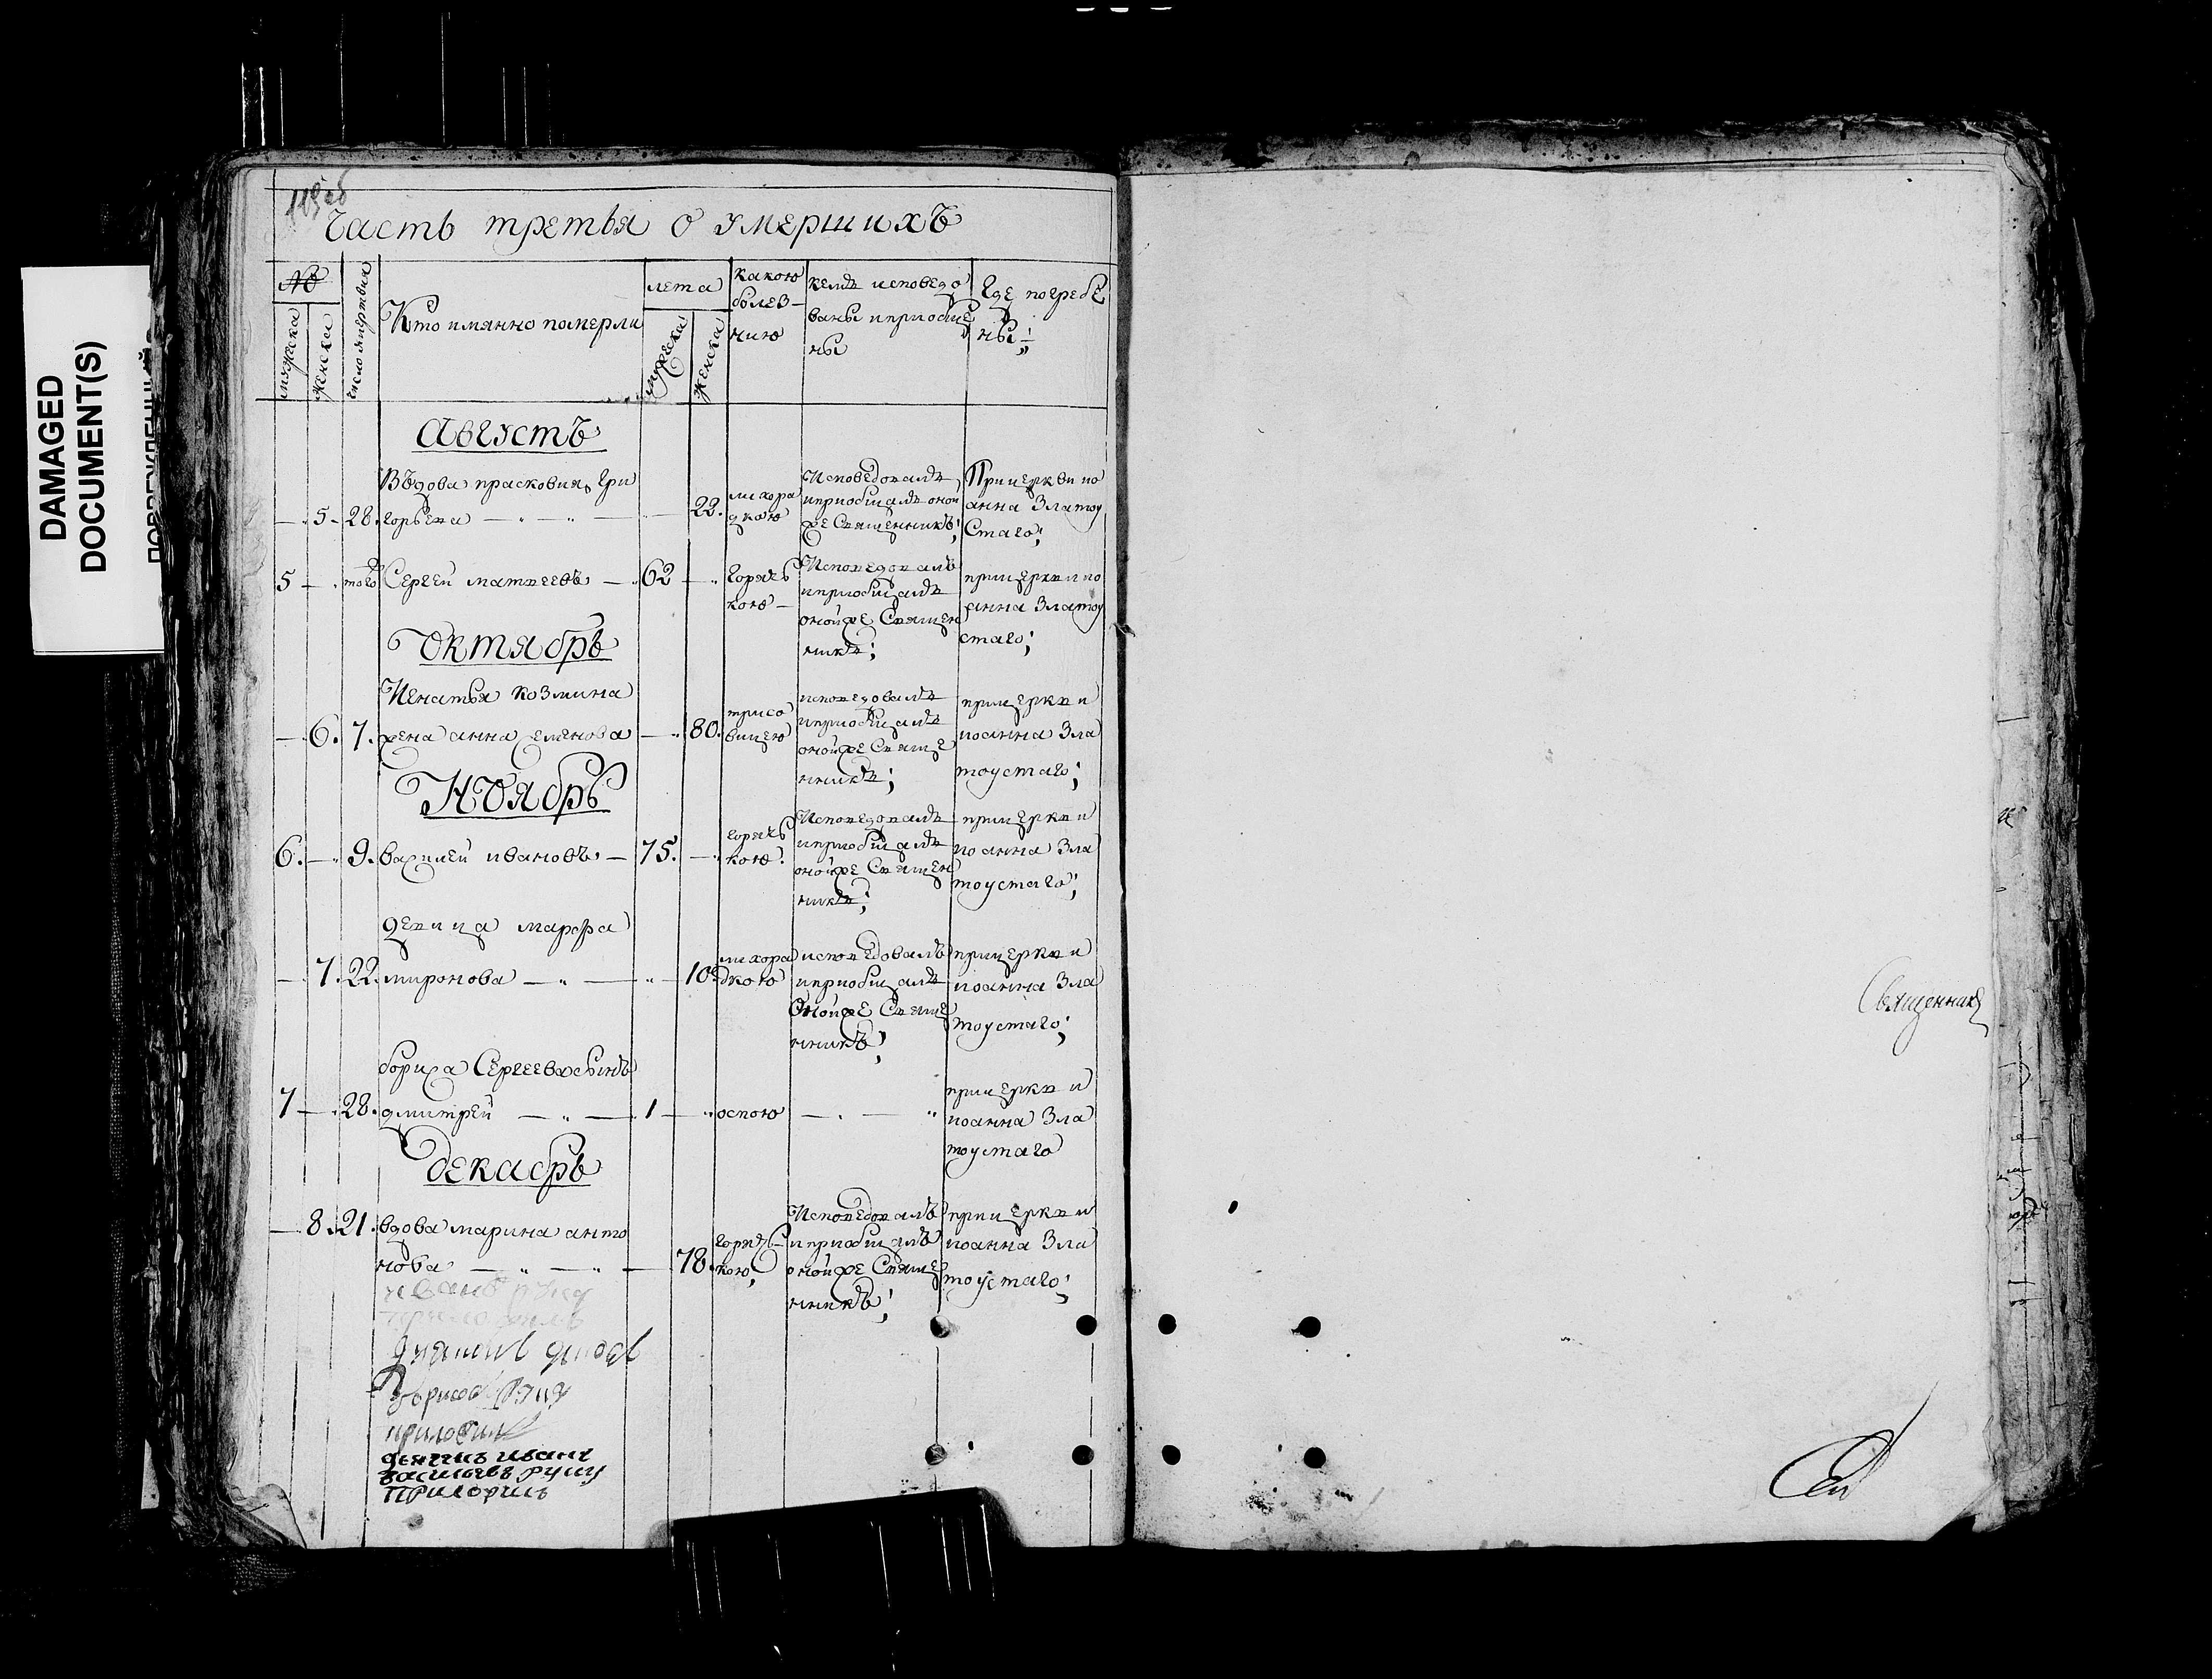 DAMAGED
DOCUMENT(S)
119 об
Часть третья о умершихъ
№
мужеска
женска
число умертвия
Кто имянно померли
лета
мужеска
женска
какою
болез-
нию
кемъ исповедо
ваны и приобще
ны
Где погребе
ны
Августъ
Въдова прасковия Гри
- 5 - 28. горьева 22.
лихора
дкою
Исповедовалъ
и приобщалъ оной
же Священникъ;
При церкви ио
анна Златоу
стаго;
5 - того Сергей матвеевъ - 62
горячь
кою -
Исповедовалъ
и приобщалъ
оной же Священ
никъ;
при церкви ио
анна Златоу
стаго;
Октябрь
Игнатья козмина
- 6. 7. жена анна семенова - 80.
трисо
вицею
исповедовалъ
и приобщалъ
оной же Свяще
нникъ;
при церкви
иоанна Зла
тоустаго;
Ноябрь
6. - 9. василей ивановъ - 75.
горячь
кою.
Исповедовалъ
и приобщалъ
оной же Священ
никъ;
при церкви
иоанна Зла
тоустаго;
девица марфа
- 7. 22. миронова - 10.
лихора
дкою
исповедовалъ
и приобщалъ
Оной же Свяще
нникъ;
при церкви
иоанна Зла
тоустаго;
бориса Сергеева сынъ
7 - 28. дмитрей - 1 - оспою
при церкви
иоанна Зла
тоустаго
декабрь
- 8. 21. вдова марина анто
нова - 78.
горячь-
кою,
Исповедовалъ
и приобщалъ
оной же Свяще
нникъ;
при церкви
иоанна Зла
тоустаго;
иванъ руку
приложилъ
приложилъ
дьячекъ иванъ
васильевъ руку
приложилъ
Священникъ